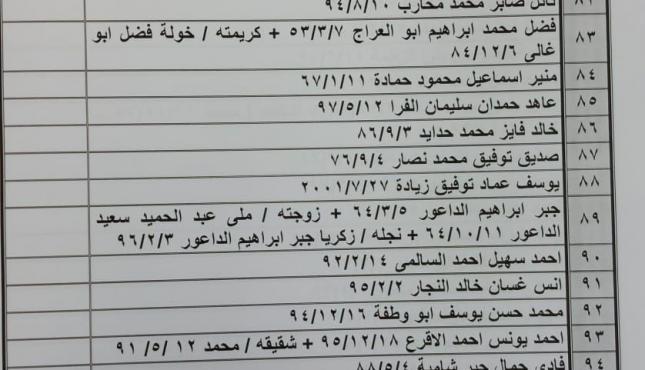 ٨٢ نائل صابر محمد محارب ٩٤/٨/١٠
٨٣ فضل محمد ابراهيم ابو العراج ٥٣/٣/٧ + كريمته / خولة فضل ابو
غالى ٨٤/١٢/٦
٨٤ منير اسماعيل محمود حمادة ٦٧/١/١١
٨٥ عاهد حمدان سليمان الفرا ٩٧/٥/١٢
٨٦ خالد فايز محمد حدايد ٨٦/٩/٣
٨٧ صديق توفيق محمد نصار ٧٦/٩/٤
٨٨ يوسف عماد توفيق زيادة ٢٠٠١/٧/٢٧
٨٩ جبر ابراهيم الداعور ٦٤/٣/٥ + زوجته / ملى عبد الحميد سعيد
الداعور ٦٤/١٠/١١ + نجله / زكريا جبر ابراهيم الداعور ٩٦/٢/٣
٩٠ احمد سهيل احمد السالمى ٩٢/٢/١٤
٩١ انس غسان خالد النجار ٩٥/٢/٢
٩٢ محمد حسن يوسف ابو وطفة ٩٤/١٢/١٦
٩٣ احمد يونس احمد الاقرع ٩٥/١٢/١٨ + شقيقه / محمد ١٢ /٥/ ٩١
٩٤ فادى جمال جبر شامية ٨٨/٥/٤